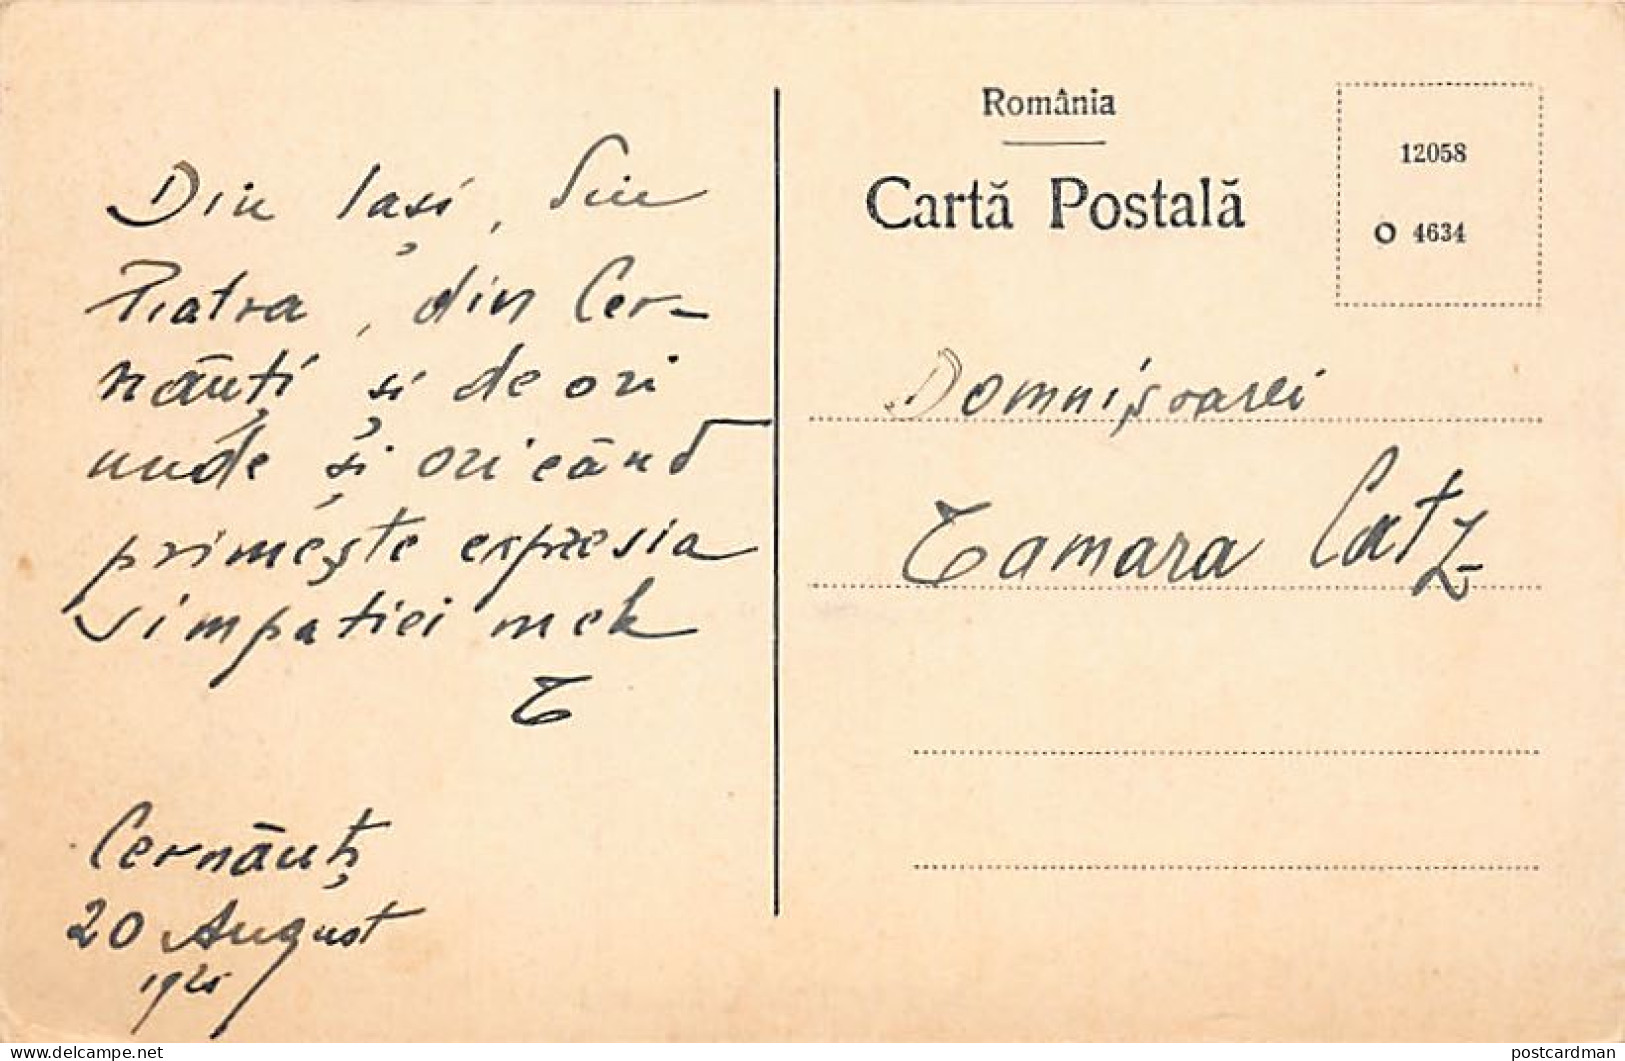 Din Iași, din
Piatra, din Cer-
năuți și de ori
unde și oricând
primește expresia
simpatiei mele
T
Cernăuți
20 August
România
Cartă Postală
12058
O 4634
Domnișoarei
Tamara Catz
postcardman